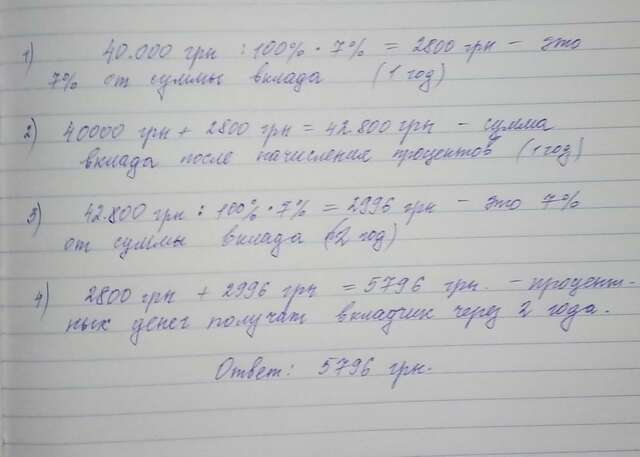 1) 40.000 грн : 100% · 7% = 2800 грн - это
7% от суммы вклада (1 год)
2) 40000 грн + 2800 грн = 42.800 грн - сумма
вклада после начисления процентов (1 год)
3) 42.800 грн : 100% · 7% = 2996 грн - это 7%
от суммы вклада (2 год)
4) 2800 грн + 2996 грн = 5796 грн. - процент-
ных денег получат вкладчик через 2 года.
Ответ: 5796 грн.